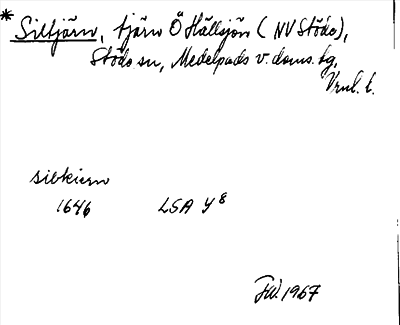 * Siltjärn, tjärn Ö Hällsjön (NV Stöde),
Stöde sn, Medelpads v. doms. tg,
Vnl. l.
silkiern
1646 LSA Y8
JW. 1967